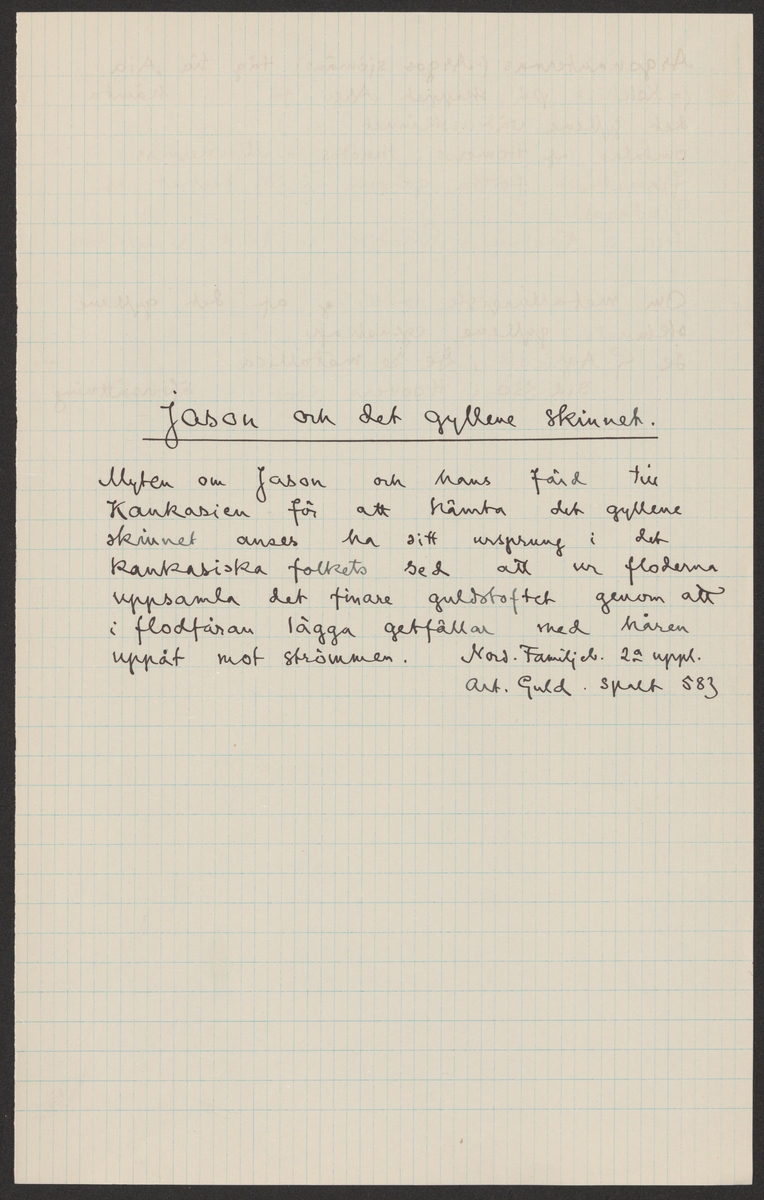 Jason och det gyllene skinnet.
Myten om Jason och hans färd till
Kaukasien för att hämta det gyllene
skinnet anses ha sitt ursprung i det
kaukasiska folkets sed att ur floderna
uppsamla det finare guldstoftet genom att
i flodfåran lägga getfällar med håren
uppåt mot strömmen. Nord. Familjeb. 2a uppl.
Art. Guld. spalt 583